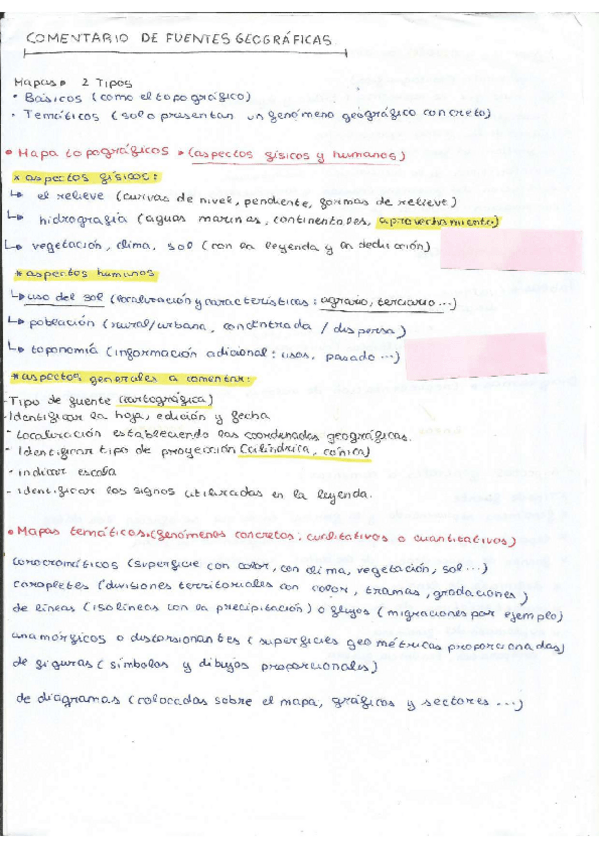 COMENTARIO DE FUENTES GEOGRÁFICAS
Mapas 2 Tipos
• Básicos (como el topográfico)
• Temáticos (solo presentan un fenómeno geográfico concreto)
• Mapa topográficos (aspectos físicos y humanos)
* aspectos físicos:
↳ el relieve (curvas de nivel, pendiente, formas de relieve)
↳ hidrografía (aguas marinas, continentales, aprovechamiento)
↳ vegetación, clima, sol (con la leyenda y la deducción)
* aspectos humanos
↳ uso del sol (localización y características: agrario, terciario ...)
↳ población (rural/urbana, concentrada / dispersa)
↳ toponomía (información adicional: usos, pasado ...)
* aspectos generales a comentar:
- Tipo de fuente (cartográfica)
- Identificar la hoja, edición y fecha
- Localización estableciendo las coordenadas geográficas.
- Identificar tipo de proyección (cilíndrica, cónica)
- indicar escala
- identificar los signos utilizadas en la leyenda.
• Mapas temáticos (fenómenos concretos: cualitativos o cuantitativos)
corocromíticos (superficie con color, con clima, vegetación, sol ...)
coropletes (divisiones territoriales con color, tramas, gradaciones)
de líneas (isolíneas con la precipitación) o flujos (migraciones por ejemplo)
anamórgicos o distorsionantes (superficies geométricas proporcionadas)
de figuras (símbolos y dibujos proporcionales)
de diagramas (colocadas sobre el mapa, gráficos y sectores ...)